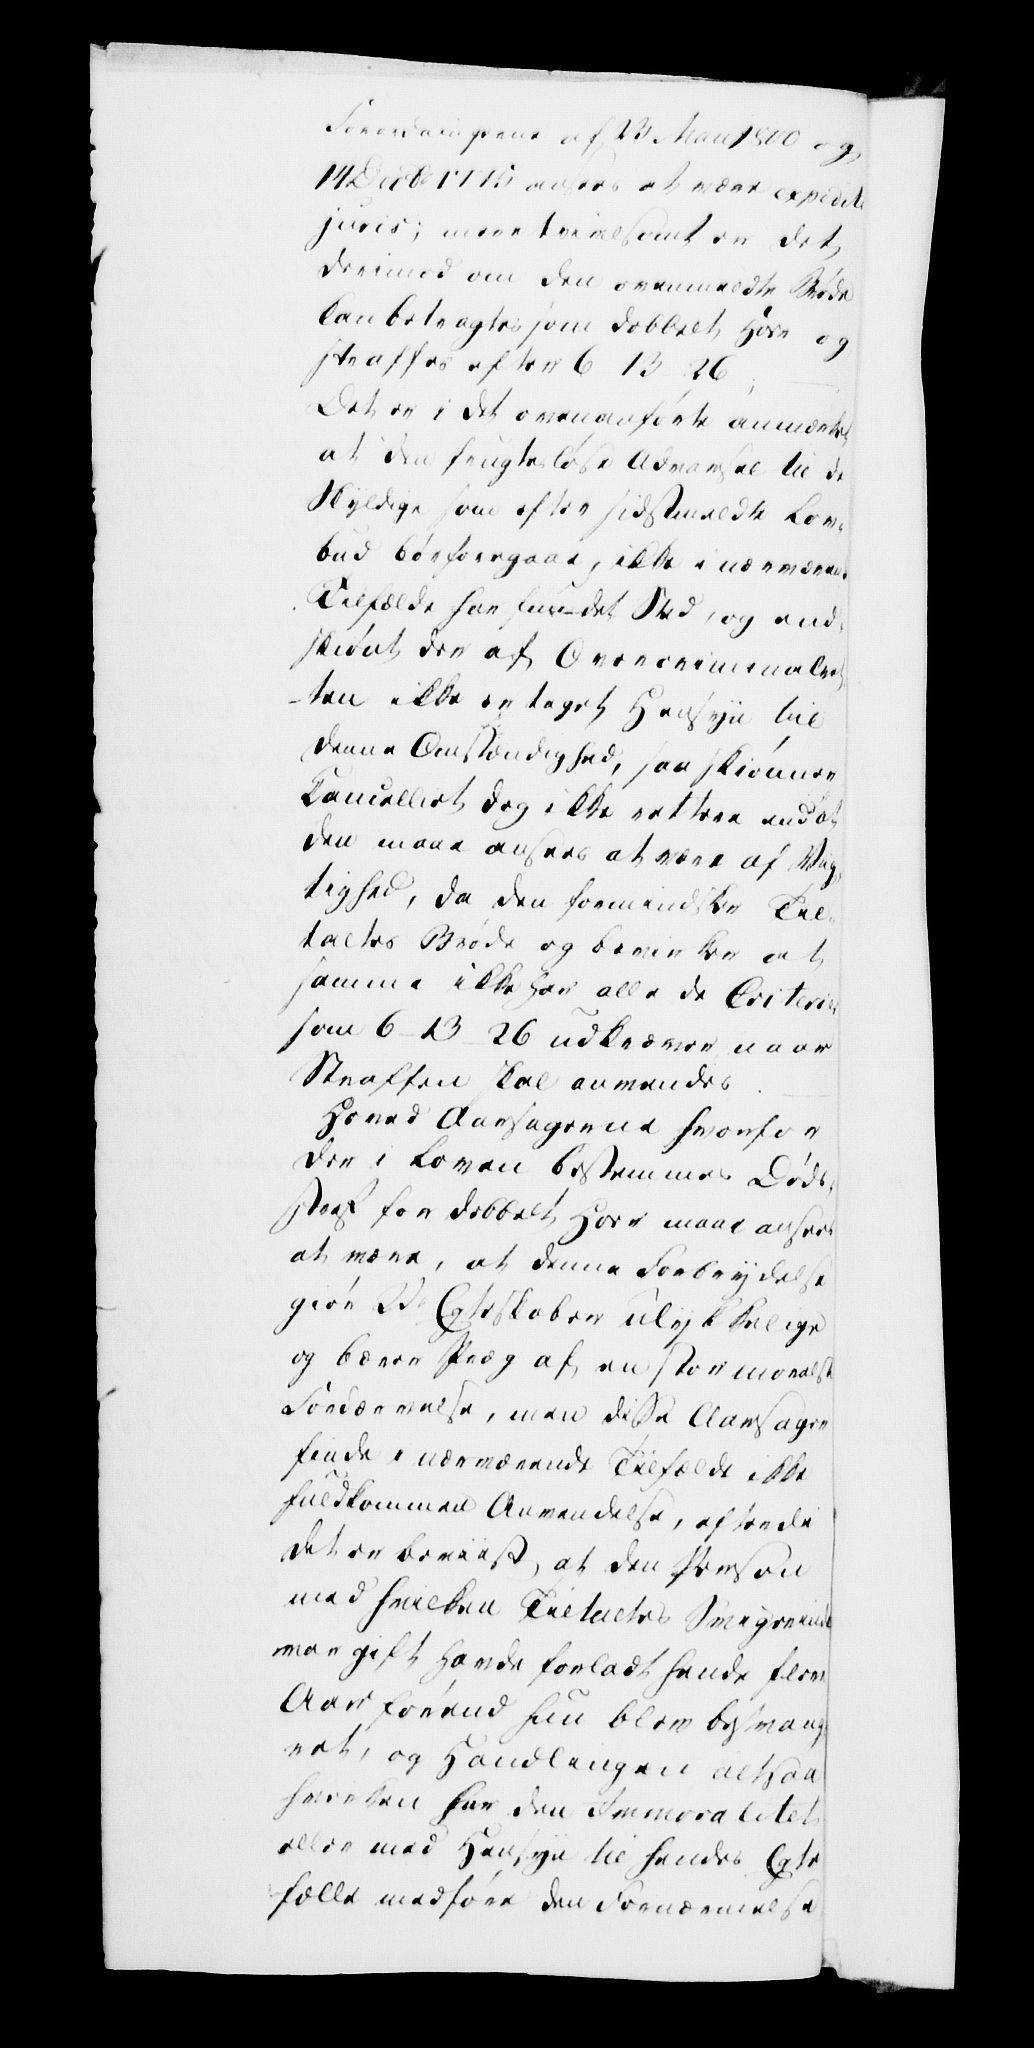 Forordningerne af 23 May 1800 og
14 Decbr 1775 ansees at være expediti
juris; mere tvivlsomt er det
derimod om den ovenmeldte Brøde
kan betragtes som dobbelt Hoer og
straffes efter 6 13 26;
Det er i det ovenanførte anmærket
at den frugtesløse Advarsel til de
Skyldige som efter sidstmeldte Lov¬
bud bør foregaae, ikke i nærværende
Tilfælde har fundet Sted, og end¬
skiønt der af Overcriminalret¬
-ten ikke er taget Hensyn til
denne Omstændighed, saa skiønner
Cancelliet dog ikke rettere end at
den maae ansees at være af Vig¬
tighed, da den formindsker Til¬
taltes Brøde og bevirker at
samme ikke har alle de Criterier
som 6-13-26 udkræver naar
Straffen skal anvendes.
Hoved Aarsagerne hvorfor
der i Loven bestemmes Døds¬
straf for dobbelt Hoer maae ansees
at være, at denne Forbrydelse
giør Egteskaber ulykkelige
og bærer Præg af en stor moralsk
Fordærvelse, men disse Aarsager
finde i nærværende Tilfælde ikke
fuldkommen Anvendelse, efterdi
det er beviist, at den Person
med hvilken Tiltaltes Svigerinde
var gift havde forladt hende flere
Aar førend hun blev besvang¬
ret, og Handlingen altsaa
hverken har den Immoralitet
eller med Hensyn til hendes Egte
fælle medføre den Fornærmelse